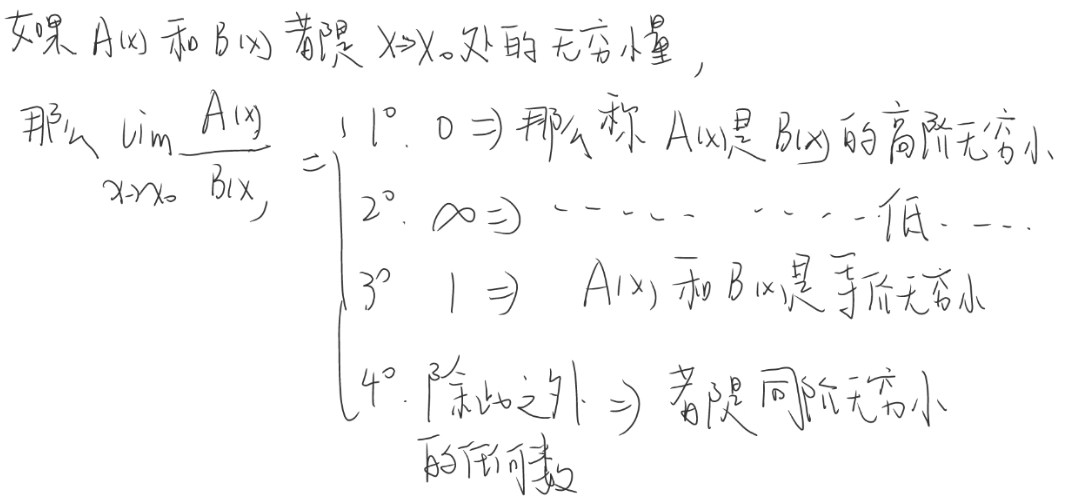 如果 A(x) 和 B(x) 都是 x→x₀处的无穷小量,
那么 lim_{x→x₀} A(x)/B(x) = { 1° 0 ⇒ 那么称 A(x)是 B(x) 的高阶无穷小
2°. ∞ ⇒ ----- ----低----
3° 1 ⇒ A(x) 和 B(x)是等价无穷小
4°. 除此之外 ⇒ 都是同阶无穷小
的任何数